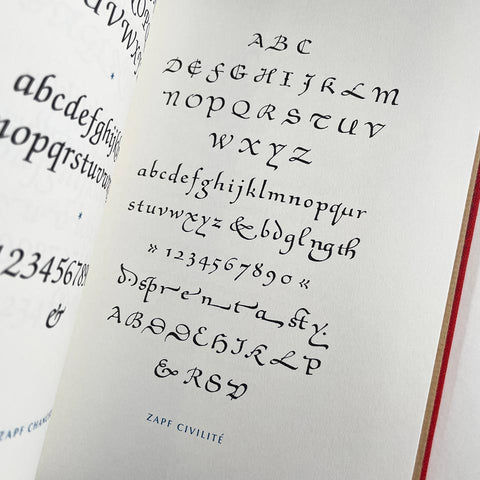 UVWX
abcdefghijk
nopqrstuvw
123456789
&
ZAPF CHANC
A B C
D E F G H I J K L M
N O P Q R S T U V
W X Y Z
abcdefghijklmnopqur
stuvwxyz & bdglngth
» 1234567890 «
A B D D E H J K L P
& R S D
ZAPF CIVILITÉ